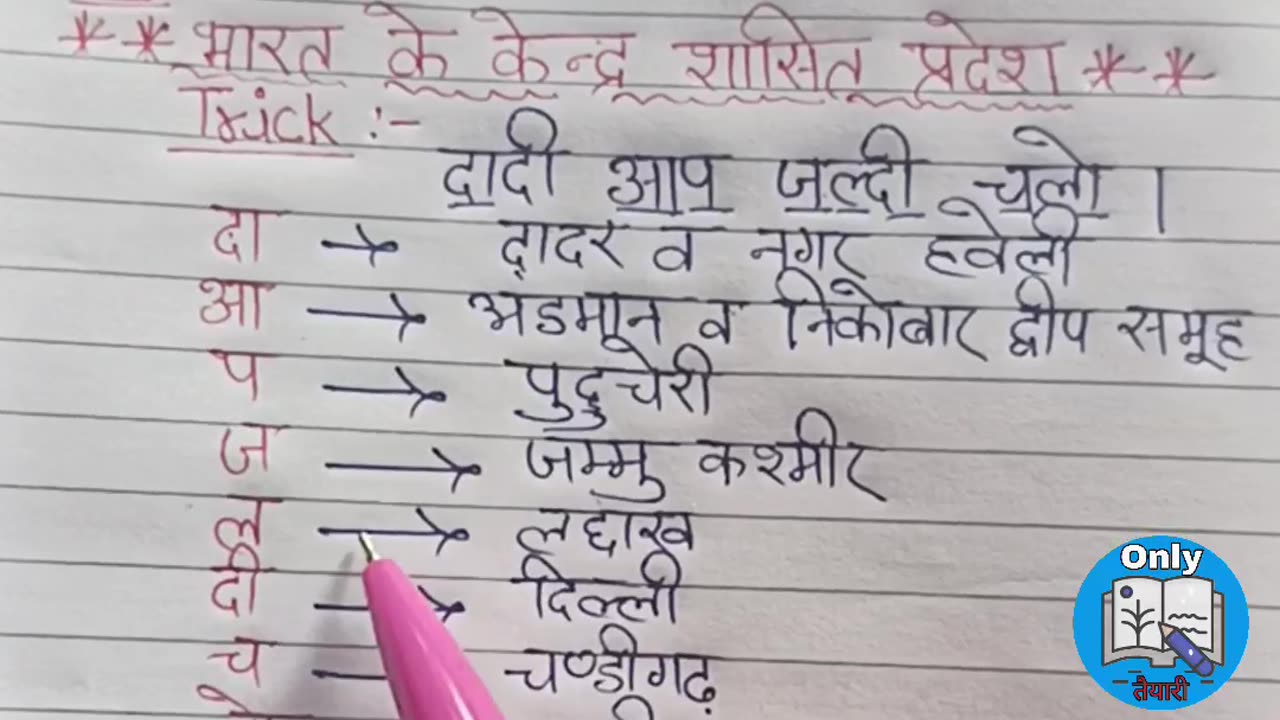 ** भारत के केन्द्र शासित प्रदेश **
Trick :-
दादी आप जल्दी चलो ।
दा → दादर व नगर हवेली
आ → अंडमान व निकोबार द्वीप समूह
प → पुदुचेरी
ज → जम्मु कश्मीर
ल → लद्दाख
दी → दिल्ली
च → चण्डीगढ़
Only
तैयारी